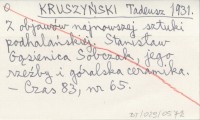 KRUSZYŃSKI Tadeusz 1931.
Z objawów najnowszej sztuki
podhalańskiej. Stanisław
Gąsienica Sobczak, jego
rzeźby i góralska ceramika.
- Czas 83, nr 65.